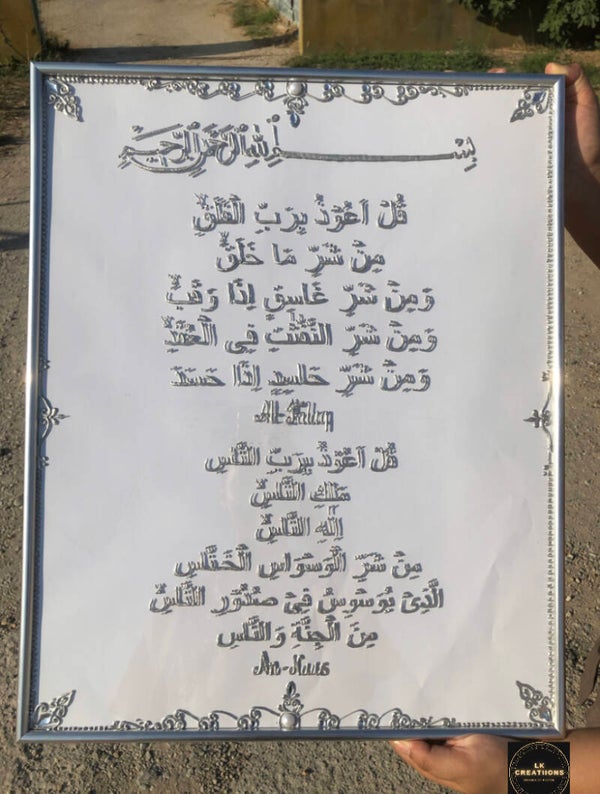 بِسْمِ اللهِ الرَّحْمٰنِ الرَّحِيْمِ
قُلْ اَعُوْذُ بِرَبِّ الْفَلَقِۙ
مِنْ شَرِّ مَا خَلَقَۙ
وَمِنْ شَرِّ غَاسِقٍ اِذَا وَقَبَۙ
وَمِنْ شَرِّ النَّفّٰثٰتِ فِى الْعُقَدِۙ
وَمِنْ شَرِّ حَاسِدٍ اِذَا حَسَدَ
Al-Falaq
قُلْ اَعُوْذُ بِرَبِّ النَّاسِۙ
مَلِكِ النَّاسِۙ
اِلٰهِ النَّاسِۙ
مِنْ شَرِّ الْوَسْوَاسِ الْخَنَّاسِۙ
الَّذِىْ يُوَسْوِسُ فِىْ صُدُوْرِ النَّاسِۙ
مِنَ الْجِنَّةِ وَالنَّاسِ
An-Naas
LK
CREATIIONS